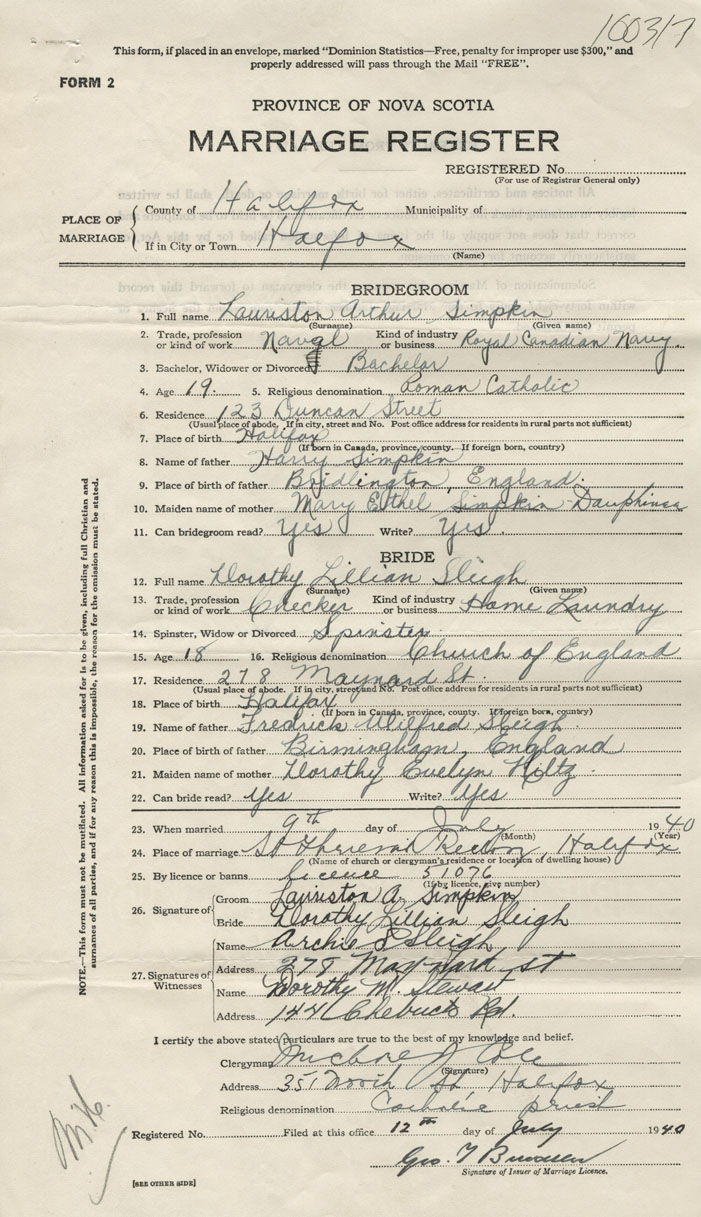 100317
This form, if placed in an envelope, marked "Dominion Statistics—Free, penalty for improper use $300," and
properly addressed will pass through the Mail "FREE".
FORM 2
PROVINCE OF NOVA SCOTIA
MARRIAGE REGISTER
REGISTERED No.
(For use of Registrar General only)
PLACE OF MARRIAGE
County of Halifax Municipality of
If in City or Town Halifax
(Name)
BRIDEGROOM
1. Full name Lauriston Arthur Simpkin
(Surname) (Given name)
2. Trade, profession or kind of work Naval Kind of industry or business Royal Canadian Navy
3. Bachelor, Widower or Divorced Bachelor
4. Age 19. 5. Religious denomination Roman Catholic
6. Residence 123 Duncan Street
(Usual place of abode. If in city, street and No. Post office address for residents in rural parts not sufficient)
7. Place of birth Halifax
(If born in Canada, province, county. If foreign born, country)
8. Name of father Harry Simpkin
9. Place of birth of father Bridlington, England.
10. Maiden name of mother Mary Ethel Simpkin Dauphinee
11. Can bridegroom read? Yes Write? Yes.
BRIDE
12. Full name Dorothy Lillian Sleigh
(Surname) (Given name)
13. Trade, profession or kind of work Checker Kind of industry or business Home Laundry
14. Spinster, Widow or Divorced Spinster
15. Age 18 16. Religious denomination Church of England
17. Residence 278 Maynard St.
(Usual place of abode. If in city, street and No. Post office address for residents in rural parts not sufficient)
18. Place of birth Halifax
(If born in Canada, province, county. If foreign born, country)
19. Name of father Fredrick Wilfred Sleigh
20. Place of birth of father Birmingham, England
21. Maiden name of mother Dorothy Evelyn Hiltz
22. Can bride read? Yes Write? Yes
23. When married 9th day of July 1940
(Month) (Year)
24. Place of marriage St Rectory, Halifax
(Name of church or clergyman's residence or location of dwelling house)
25. By licence or banns licence 51076
(If by licence, give number)
26. Signature of
Groom Lauriston A. Simpkin
Bride Dorothy Lillian Sleigh
27. Signatures of Witnesses
Name Archie Sleigh
Address 278 Maynard St
Name Dorothy M. Stewart
Address 144 Chebucto Rd.
I certify the above stated particulars are true to the best of my knowledge and belief.
Clergyman Michael J
(Signature)
Address 351 North St Halifax
Religious denomination Catholic priest
Registered No. Filed at this office 12th day of July 1940
Geo. T
Signature of Issuer of Marriage Licence.
[SEE OTHER SIDE]
NOTE.—This form must not be mutilated. All information asked for is to be given, including full Christian and
surnames of all parties, and if for any reason this is impossible, the reason for the omission must be stated.